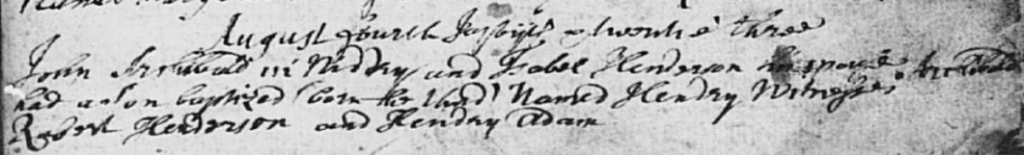 August fourth Jajviic & twentie three
John Archbald in Niddry and Isobel Henderson his spouse
had a son baptized born the third Named Hendry Witnesses Archbald
Robert Henderson and Hendry Adam